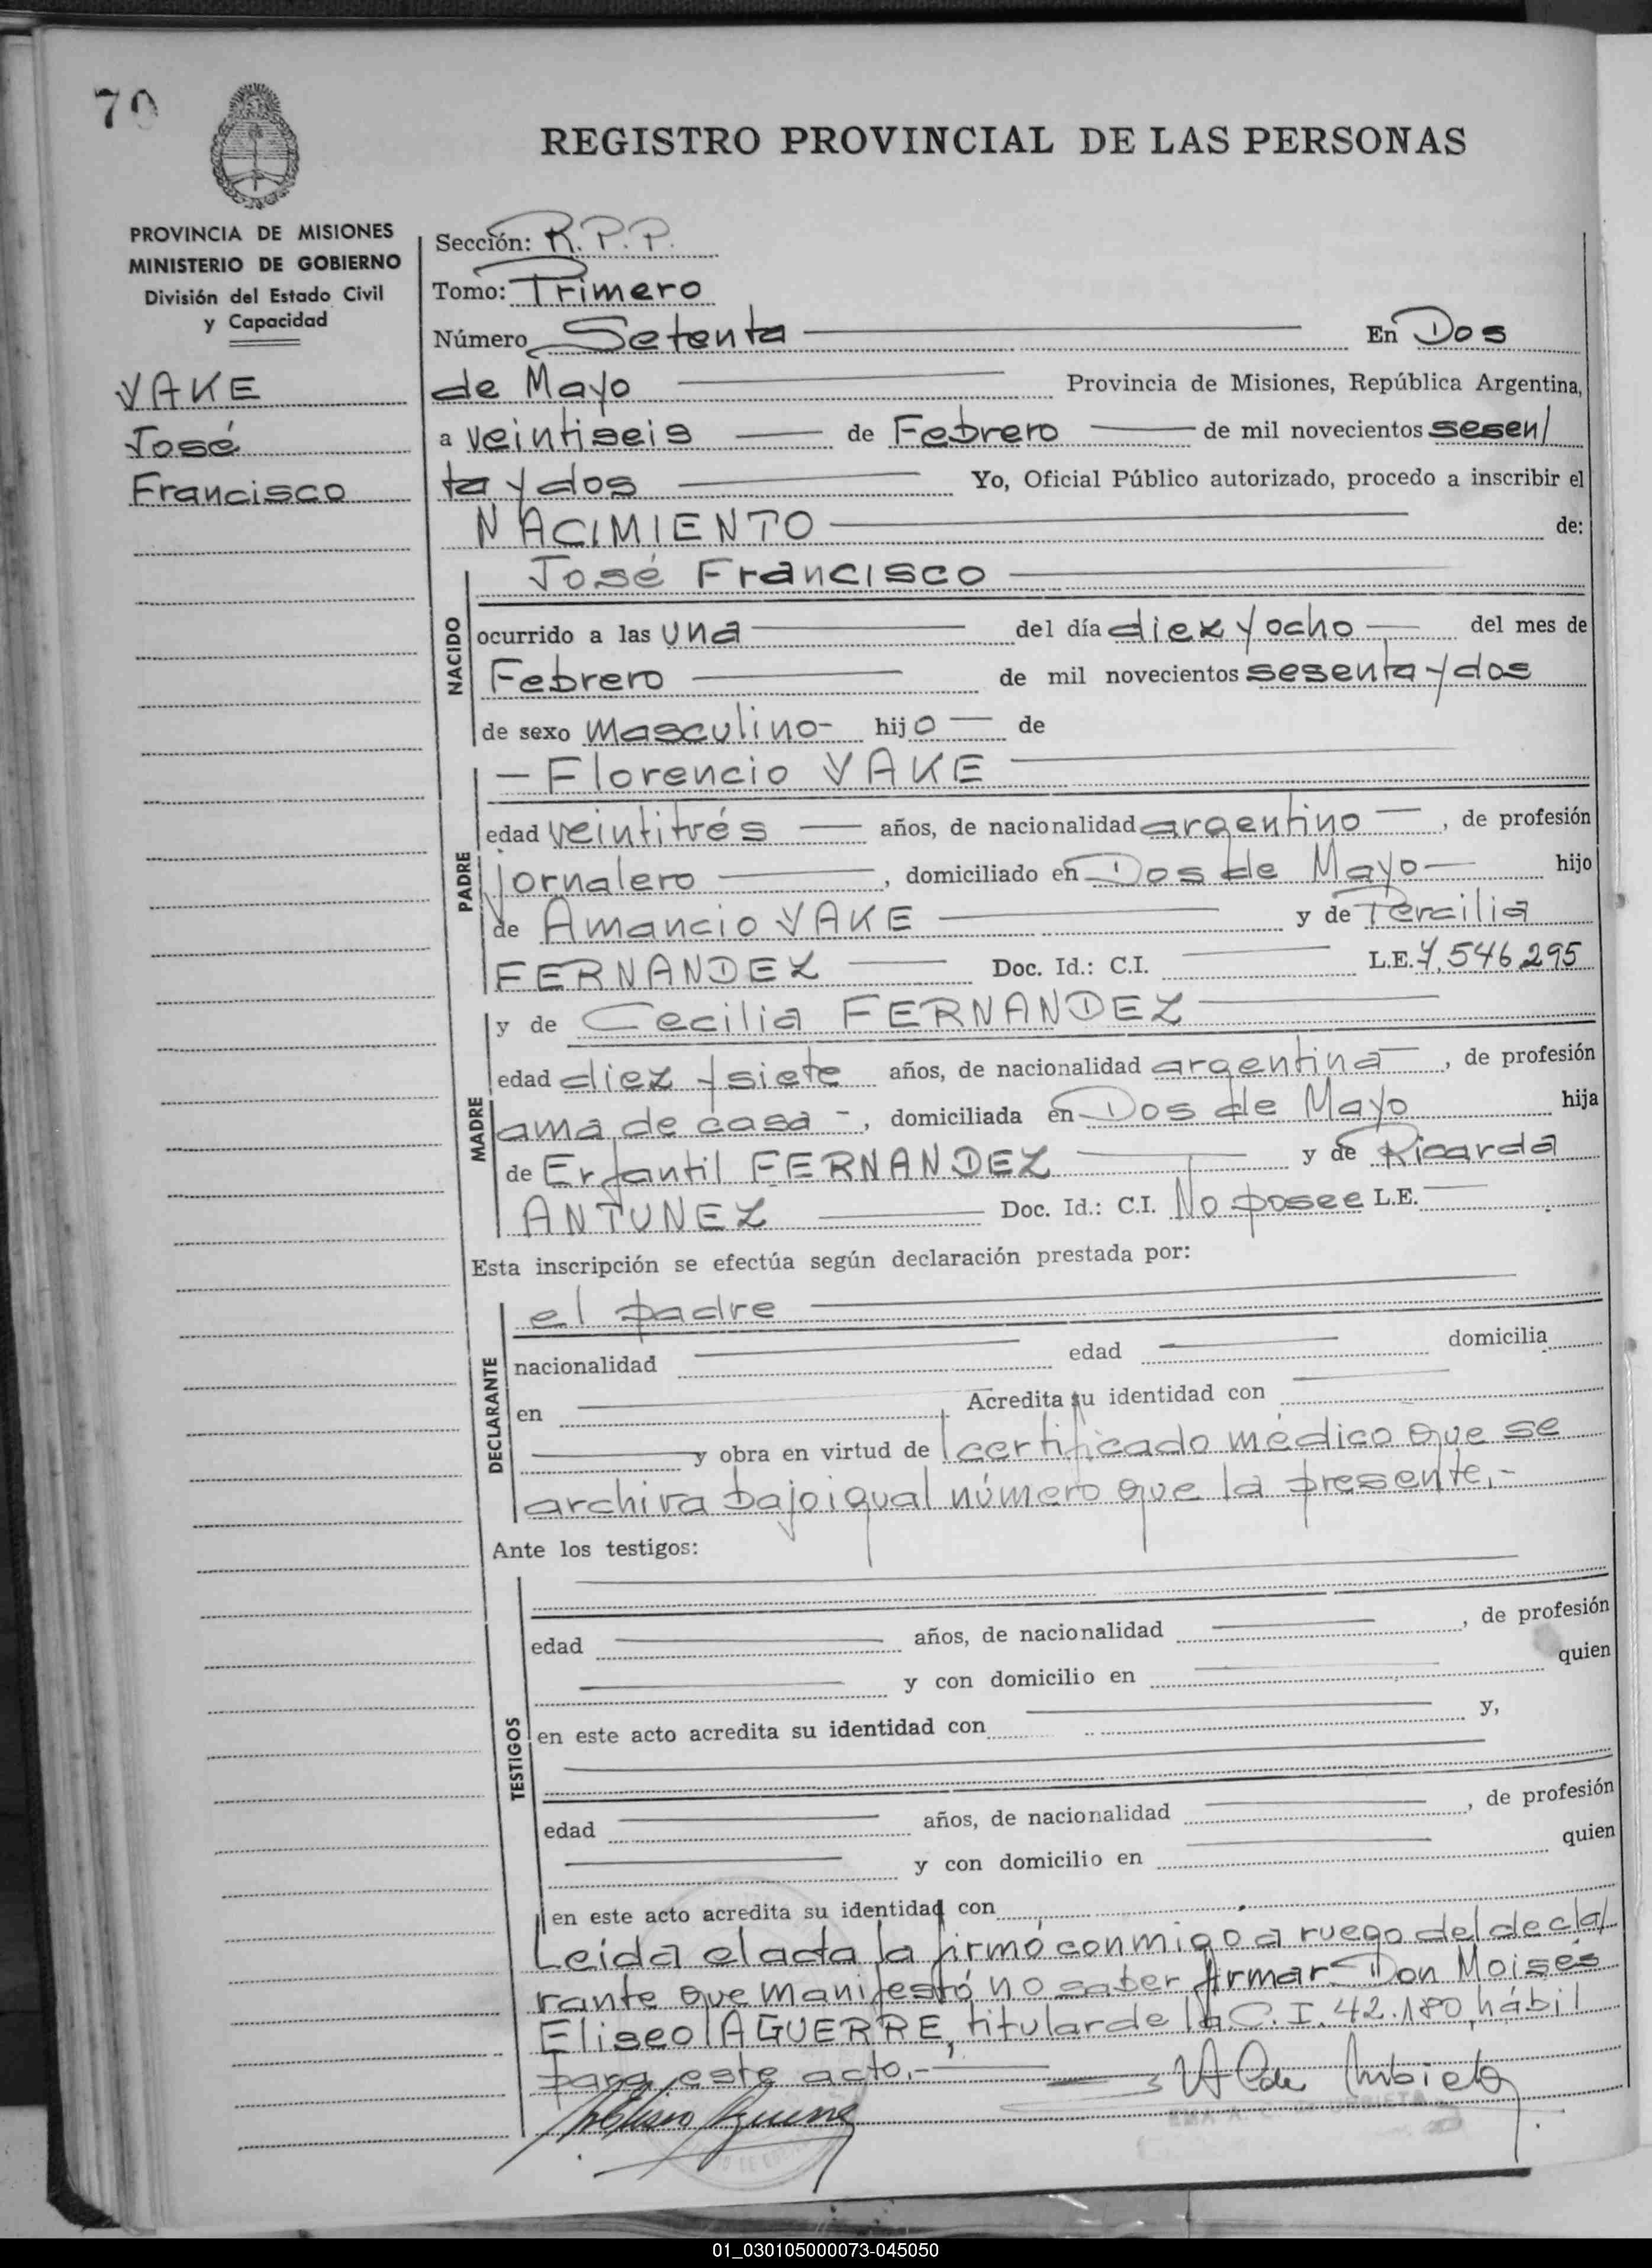 70
REGISTRO PROVINCIAL DE LAS PERSONAS
PROVINCIA DE MISIONES
MINISTERIO DE GOBIERNO
División del Estado Civil
y Capacidad
VAKE
José
Francisco
Sección: R. P. P.
Tomo: Primero
Número Setenta En Dos
de Mayo Provincia de Misiones, República Argentina,
a veintiseis de Febrero de mil novecientos sesen/
ta y dos Yo, Oficial Público autorizado, procedo a inscribir el
NACIMIENTO de:
NACIDO
José Francisco
ocurrido a las una del día diez y ocho del mes de
Febrero de mil novecientos sesenta y dos
de sexo masculino- hijo de
PADRE
- Florencio VAKE
edad veintitrés años, de nacionalidad argentino, de profesión
jornalero, domiciliado en Dos de Mayo hijo
de Amancio VAKE y de Tercilia
FERNANDEZ Doc. Id.: C.I. L.E. 7.546,295
MADRE
y de Cecilia FERNANDEZ
edad diez y siete años, de nacionalidad argentina, de profesión
ama de casa -, domiciliada en Dos de Mayo hija
de Erfantil FERNANDEZ y de Ricarda
ANTUNEZ Doc. Id.: C.I. No posee L.E.
Esta inscripción se efectúa según declaración prestada por:
DECLARANTE
el padre
nacionalidad edad domicilia
en Acredita su identidad con
y obra en virtud de certificado médico que se
archiva bajo igual número que la presente.-
Ante los testigos:
TESTIGOS
edad años, de nacionalidad , de profesión
y con domicilio en quien
en este acto acredita su identidad con y,
edad años, de nacionalidad , de profesión
y con domicilio en quien
en este acto acredita su identidad con
Leida el acta la firmó conmigo a ruego del decla/
rante que manifestó no saber firmar Don Moisés
Eliseo AGUERRE, titular de la C. I. 42.180, hábil
para este acto.-
01_030105000073-045050